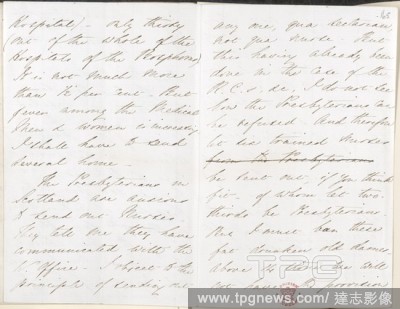 Hospital) - only thirty
(out of the whole of the
Hospitals of the Bosphorus)
It is not much more
than ½ per cent. But
fever among the Medical
Men & Women is increasing
I shall have to send
several home -
The Presbyterians in
Scotland are anxious
to send out Nurses.
They tell me they have
communicated with the
W. Office - I object to the
principle of sending out
any one, qua sectarian
not qua nurse. But
this having already been
done in the case of the
R.C.s &c, I do not see
how the Presbyterians can
be refused. And therefore
let six trained Nurses
from the Presbyterians
be sent out, if you think
fit - of whom let two-
thirds be Presbyterians.
But I must bar these
fat drunken old dames.
Above 14 stone we will
not have - provision
TPG
www.tpgnews.com / 達志影像